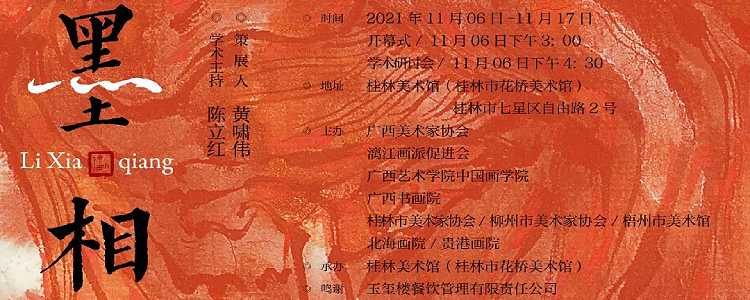 墨
相
Li Xia qiang
策展人 黄啸伟
学术主持 陈立红
时间 2021年11月06日-11月17日
开幕式/ 11月06日下午3: 00
学术研讨会/ 11月06日下午4: 30
地址 桂林美术馆(桂林市花桥美术馆)
桂林市七星区自由路2号
主办 广西美术家协会
漓江画派促进会
广西艺术学院中国画学院
广西书画院
桂林市美术家协会/柳州市美术家协会/梧州市美术馆
北海画院/贵港画院
承办 桂林美术馆(桂林市花桥美术馆)
鸣谢 玉玺楼餐饮管理有限责任公司